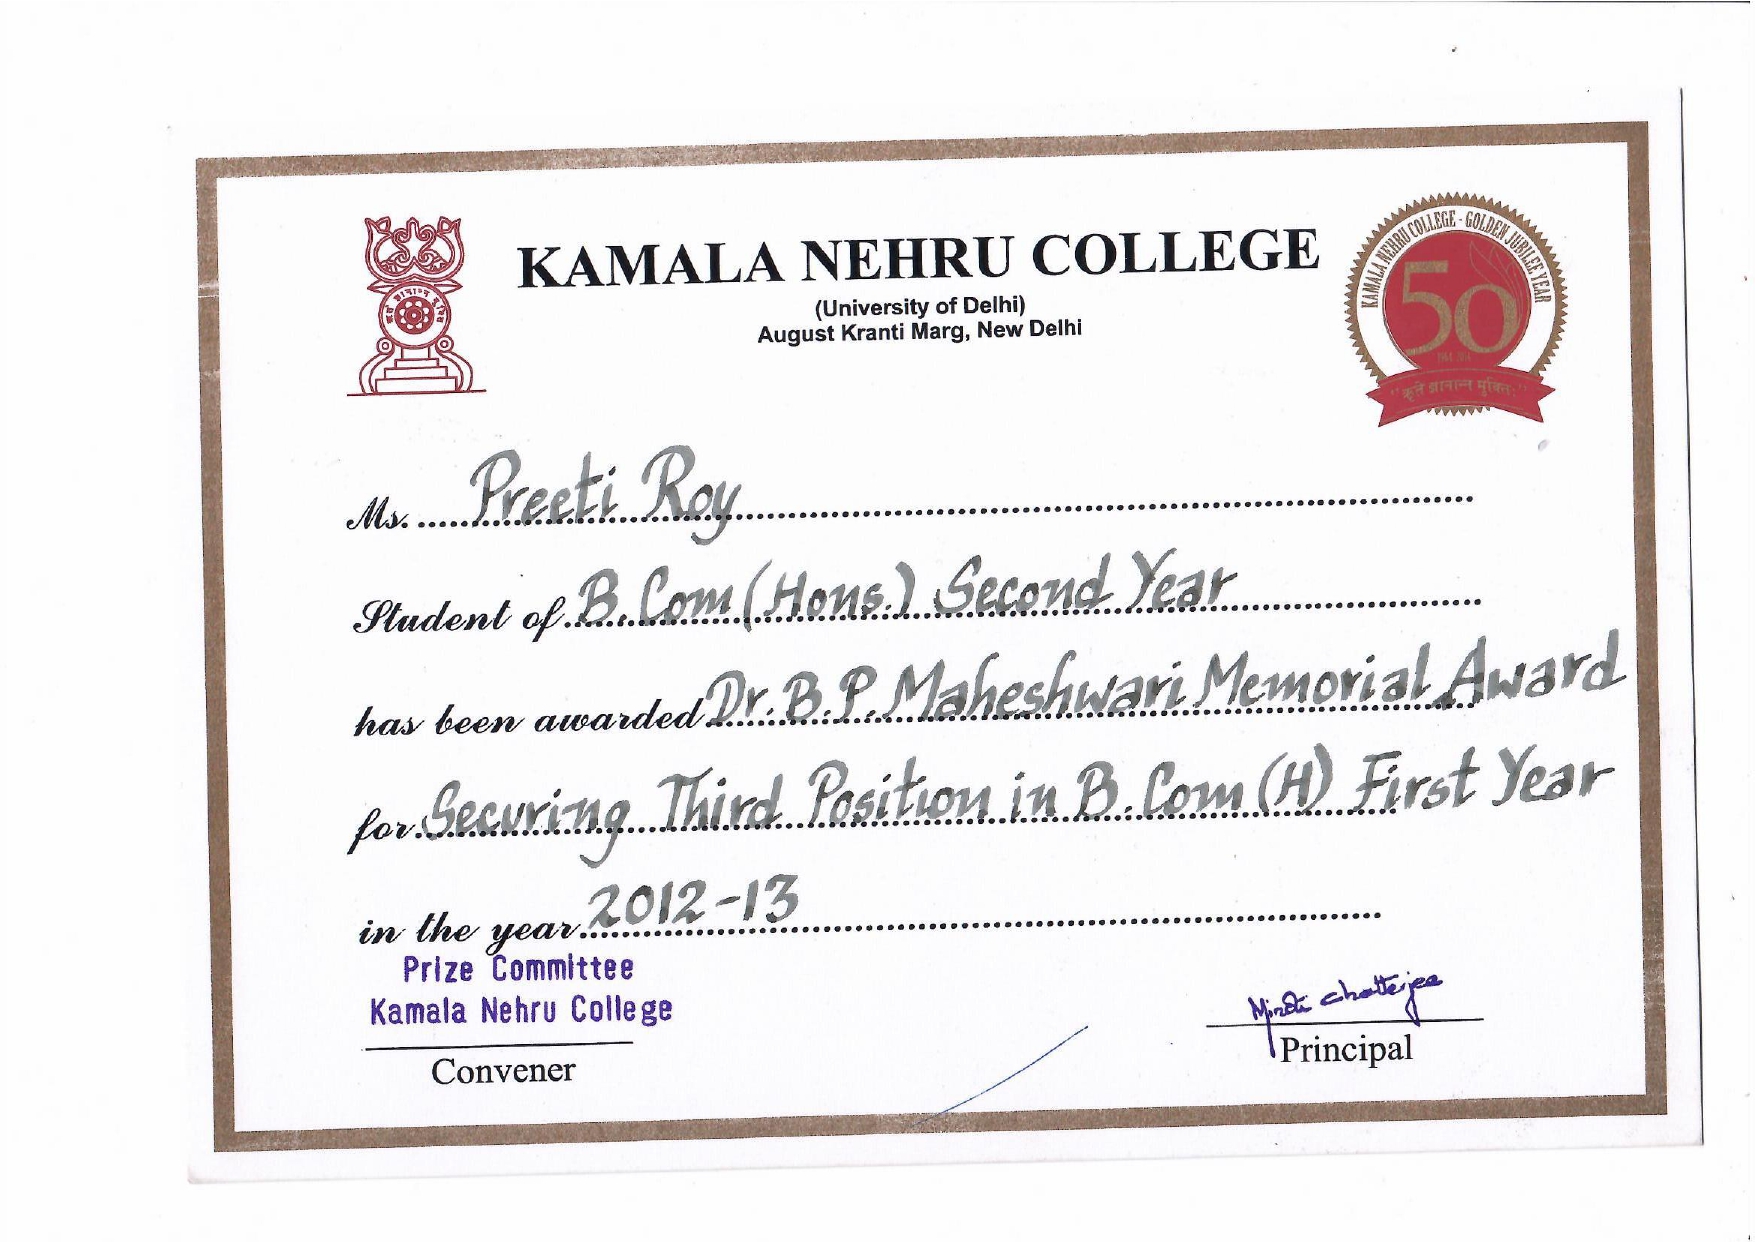 KAMALA NEHRU COLLEGE
(University of Delhi)
August Kranti Marg, New Delhi
KAMALA NEHRU COLLEGE - GOLDEN JUBILEE YEAR
50
Ms. Preeti Roy
Student of B.Com (Hons.) Second Year
has been awarded Dr. B.P. Maheshwari Memorial Award
for Securing Third Position in B.Com (H) First Year
in the year 2012-13
Prize Committee
Kamala Nehru College
Convener
Principal